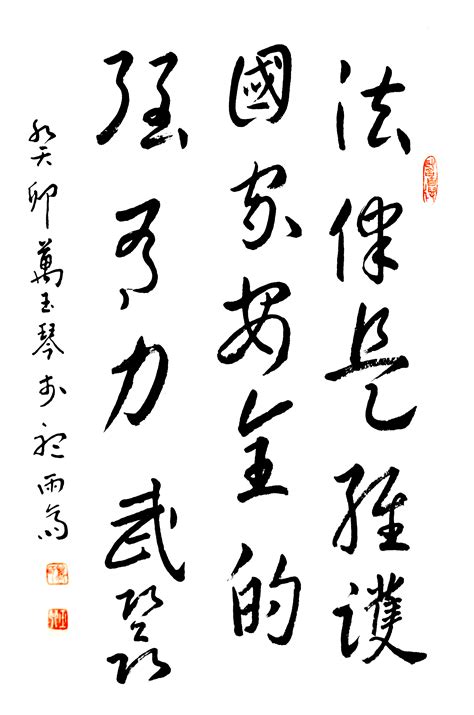 法律是維護
國家安全的
強有力武器
癸卯萬玉琴於聽雨齋